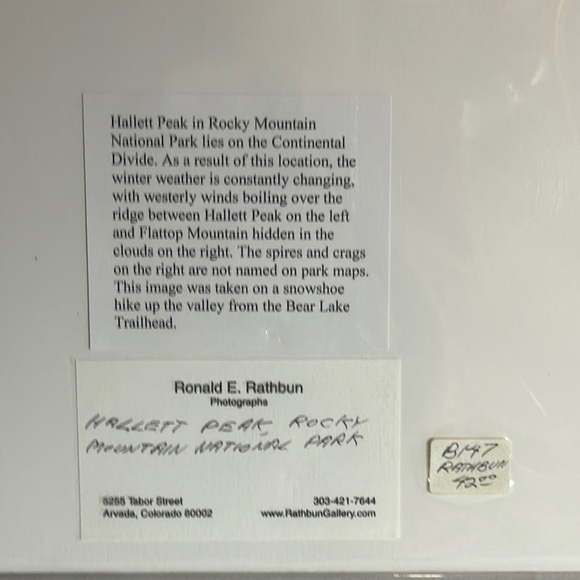 Hallett Peak in Rocky Mountain
National Park lies on the Continental
Divide. As a result of this location, the
winter weather is constantly changing,
with westerly winds boiling over the
ridge between Hallett Peak on the left
and Flattop Mountain hidden in the
clouds on the right. The spires and crags
on the right are not named on park maps.
This image was taken on a snowshoe
hike up the valley from the Bear Lake
Trailhead.
Ronald E. Rathbun
Photographs
HALLETT PEAK, ROCKY
MOUNTAIN NATIONAL PARK
5255 Tabor Street 303-421-7644
Arvada, Colorado 80002 www.RathbunGallery.com
B147
RATHBUN
42.00